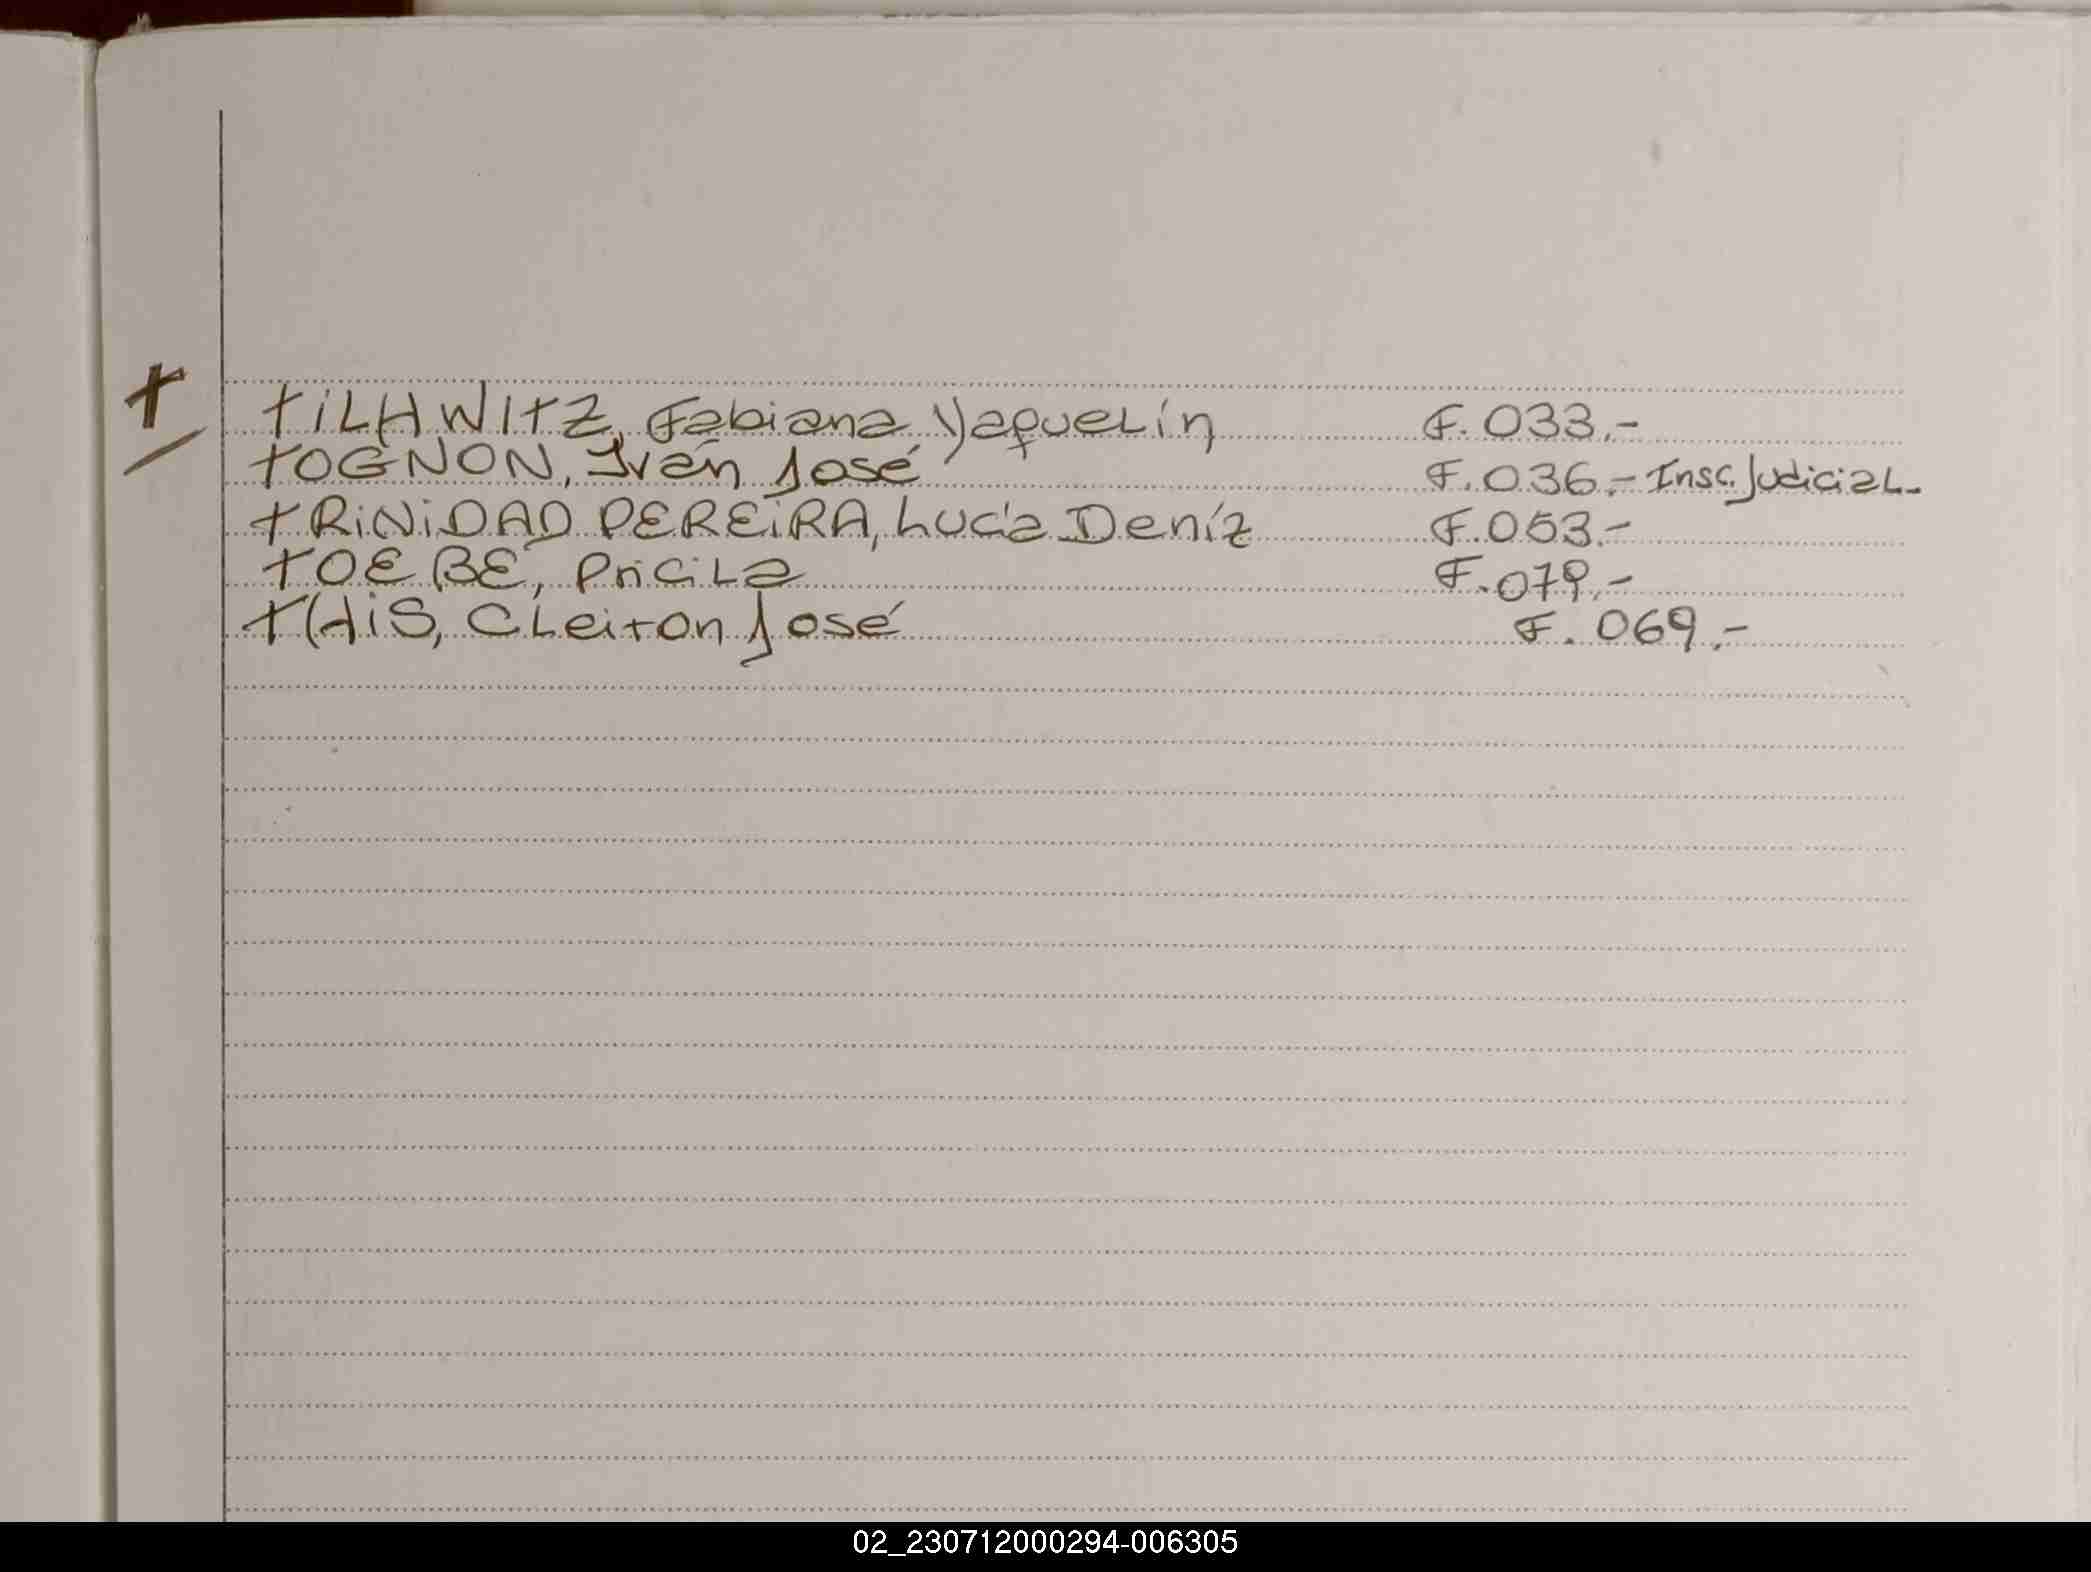 T
TILHWITZ, Fabiana Yaquelín F. 033.-
TOGNON, Iván José F. 036.- Insc. Judicial.-
TRINIDAD PEREIRA, Lucía Deníz F. 053.-
TOEBE, Pricila F. 079.-
THIS, Cleiton José F. 069.-
02_230712000294-006305